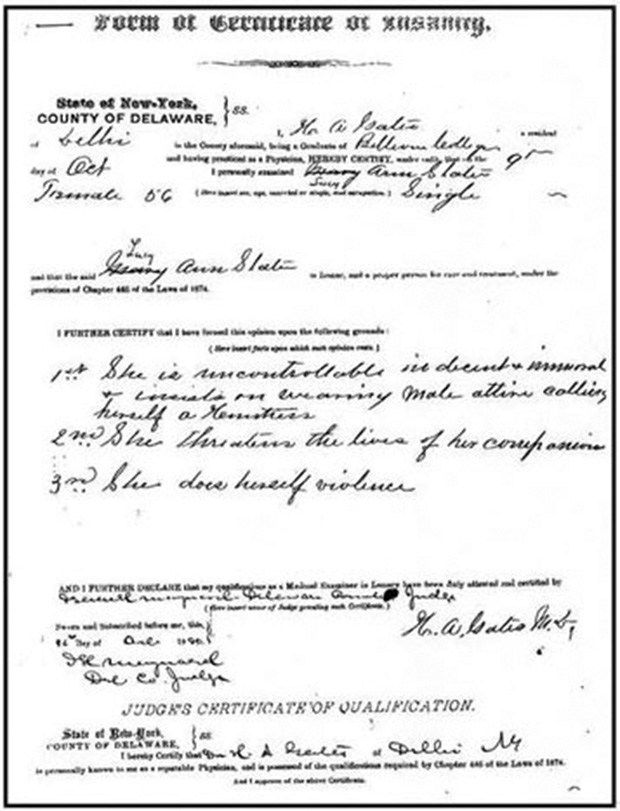 Form of Certificate of Insanity.
State of New-York,
COUNTY OF DELAWARE, } ss.
I, H. A. Gates a resident
of Delhi in the County aforesaid, being a Graduate of Bellevue College
and having practiced as a Physician, HEREBY CERTIFY, under oath, that on the 9th
day of Oct I personally examined Lucy Ann Slater
Female 56 (Here insert sex, age, married or single, and occupation.) Single
and that the said Lucy Ann Slater is insane, and a proper person for care and treatment, under the
provisions of Chapter 446 of the Laws of 1874.
I FURTHER CERTIFY that I have formed this opinion upon the following grounds:
(Here insert facts upon which such opinion rests.)
1st She is uncontrollable indecent & immoral
& insists on wearing male attire calling
herself a Huntress
2nd She threatens the lives of her companions
3rd She does herself violence
AND I FURTHER DECLARE that my qualifications as a Medical Examiner in Lunacy have been duly attested and certified by
Maynard Delaware Judge
(Here insert name of Judge granting such Certificate.)
Sworn and Subscribed before me, this
day of
H. A. Gates M. D.
Maynard
Del Co. Judge
JUDGE'S CERTIFICATE OF QUALIFICATION.
State of New-York,
COUNTY OF DELAWARE, } ss.
I hereby Certify that Dr H A Gates of Delhi NY
is personally known to me as a reputable Physician, and is possessed of the qualifications required by Chapter 446 of the Laws of 1874.
And I approve of the above Certificate.